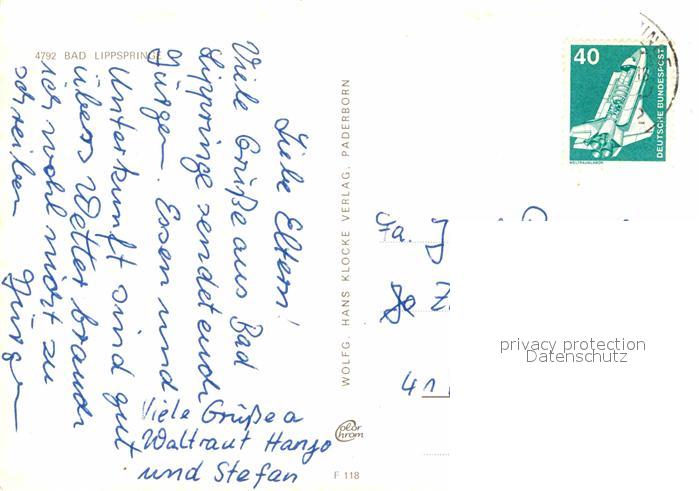 4792 BAD LIPPSPRINGE
Liebe Eltern!
Viele Grüße aus Bad
Lippringe sendet euch
Jürgen. Essen und
Unterkunft sind gut
übers Wetter brauch
ich wohl nicht zu
schreiben Jürgen
Viele Grüße a
Waltraut Hanjo
und Stefan
WOLFG. HANS KLOCKE VERLAG, PADERBORN
Color
Chrom
F 118
40
DEUTSCHE BUNDESPOST
WELTRAUMLABOR
Fa. J
41
privacy protection
Datenschutz